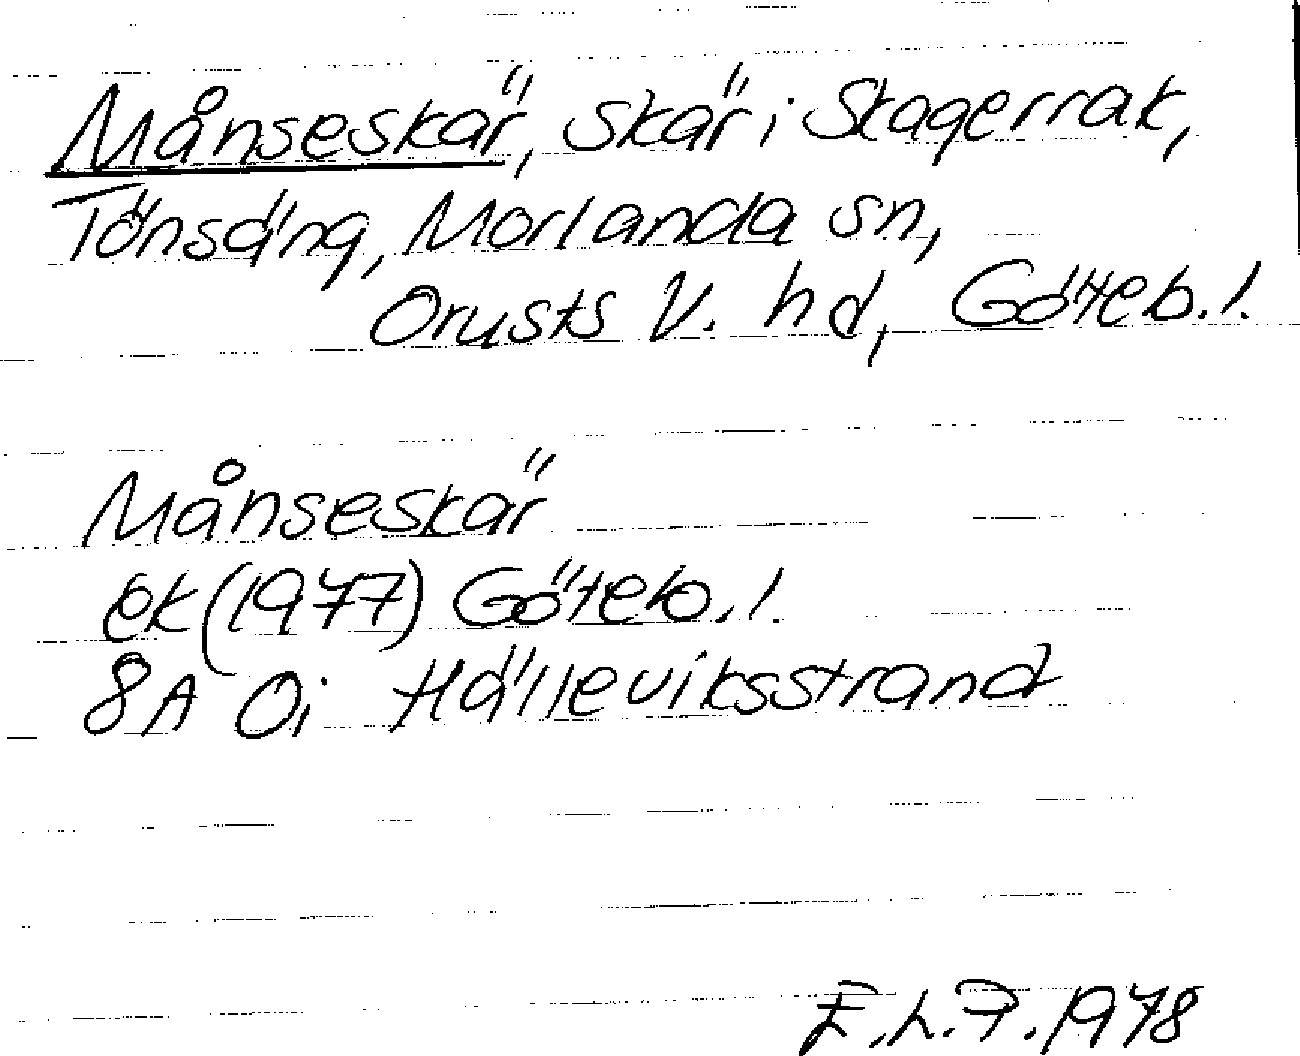 Månseskär, skär i Skagerrak,
Tönsäng, Morlanda sn,
Orusts V. hd, Göteb. l.
Månseskär
ek (1977) Göteb. l.
8A Oi Hälleviksstrand
E.L.P. 1978